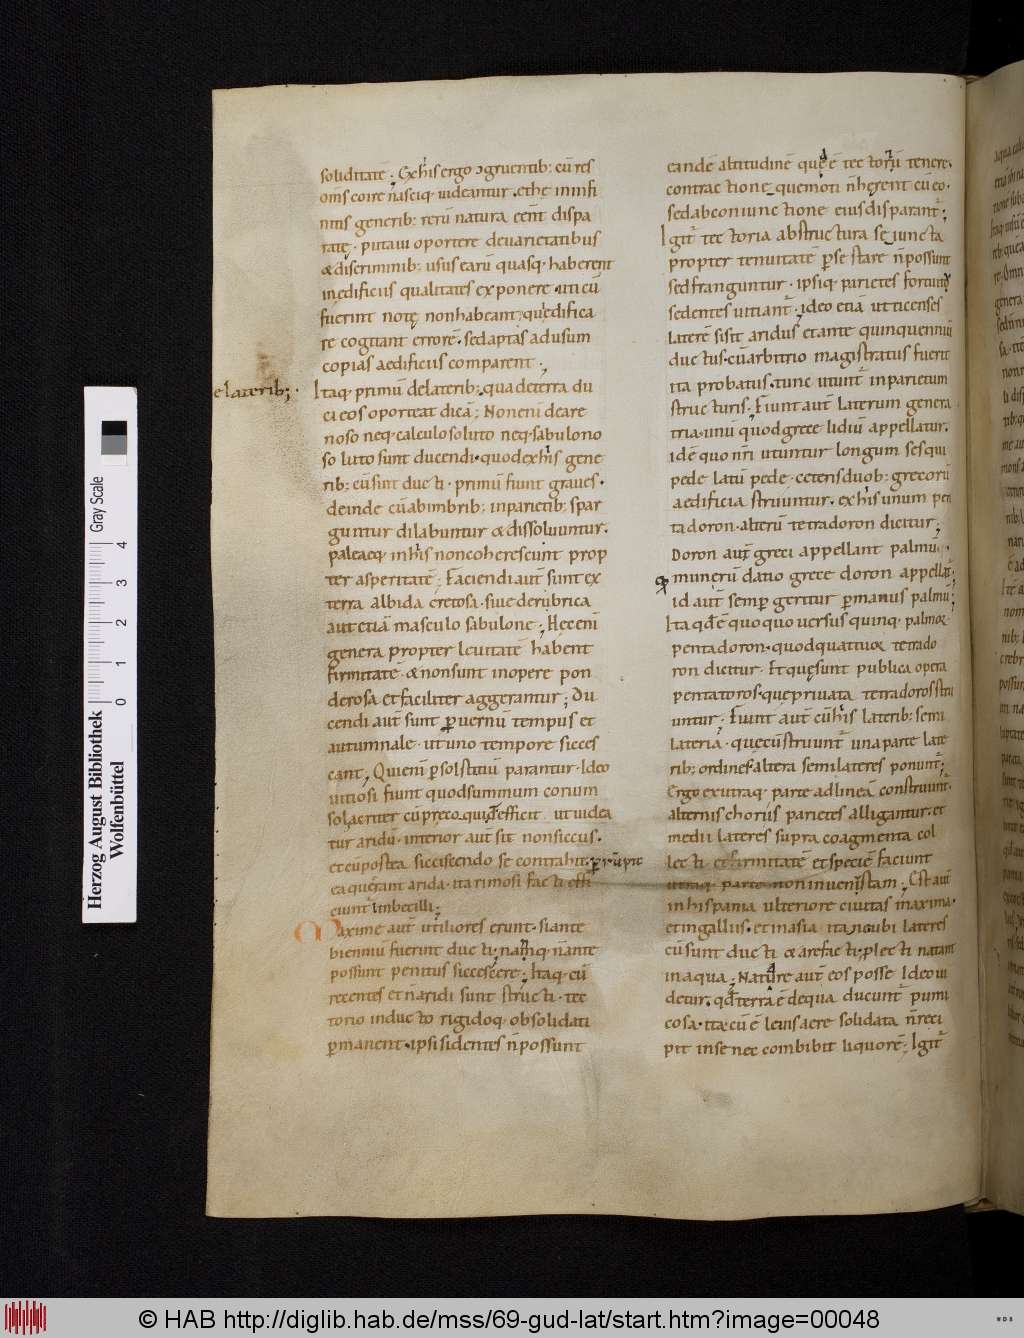 soliditatē; Ex his ergo ɔgruentib: cū res
om̄s coire nasciq; uideantur. et he in infi
nitis generib: rerū natura eēnt dispa
ratę. putaui oportere deuarietatibus
& discriminib: usus earū quasq; haberent
in edificiis qualitates exponere. uti cū
fuerint notę non habeant quędifica
re cogitant errorē. sed aptas ad usum
copias aedificiis comparent;
elaterib;
Itaq; primū delaterib: qua deterra du
ci eos oporteat dicā; Non eni deare
noso neq; calculoso luto neq; sabulono
so luto sunt ducendi. quod ex his gene
rib: cū sint ducti. primū fiunt graues.
deinde cū abimbrib: inparietib: spar
guntur dilabuntur & dissoluuntur.
paleaeq; in his non coherescunt prop
ter asperitatē; Faciendi aut̄ sunt ex
terra albida cretosa. siue derubrica
aut etiā masculo sabulone; Hec eni
genera propter leuitatē habent
firmitatē. & non sunt in opere pon
derosa. et faciliter aggerantur; Du
cendi aut̄ sunt ꝑ uernū tempus et
autumnale. ut uno tempore sicces
cant; Qui eni ꝑ solstitiū parantur. Ideo
uitiosi fiunt quod summum corum
sol acriter cū precoquit efficit ut uidea
tur aridū. interior aut̄ sit non siccus.
et cū postea sicciscendo se contrahit. ꝑrūpit
ea quęrant arida. ita rimosi facti effi
ciunt̄ imbecilli;
Maxime aut̄ utiliores erunt. si ante
bienniū fuerint ducti; namq; n̄ ante
possunt penitus siccescere; Itaq; cū
recentes et n̄ aridi sunt structi. tec
torio inducto rigidoq; obsolidati
ꝑmanent. ipsi sidentes n̄ possunt
eandē altitudinē quę ē tectorii tenere.
contractione. quemoti n̄ hęrent cū eo.
sed abconiunctione eius disparant̄;
Igit̄ tectoria abstructura seiuncta
propter tenuitatē ꝑ se stare n̄ possunt
sed franguntur. ipsiq; parietes fortuito
sedentes uitiant̄. ideo etiā uticenses
laterē si sit aridus et ante quinquenniū
ductus. cū arbitrio magistratus fuerit
ita probatus. tunc utunt̄ inparietum
structuris. Fiunt aut̄ laterum genera
tria. unū quod grece lidiū appellatur.
id ē quo nr̄i utuntur longum sesqui
pede latū pede. ceteris duob: grecorū
aedificia struuntur. ex his unum pen
tadoron. alterū tetradoron dicitur;
Doron aut̄ greci appellant palmū.
munerū datio grece doron appellat̄;
id aut̄ semꝑ geritur ꝑ manus palmū;
Ita qd̄ ē quoquouersus quinq; palmoꝝ.
pentadoron. quod quattuoꝝ tetrado
ron dicitur. Et quęsunt publica opera
pentatoros. que priuata tetradoros stru
untur; Fiunt aut̄ cū his laterib: semi
lateria. que cū struunt̄ una parte late
rib: ordines altera semilateres ponunt̄;
Ergo exutraq; parte ad lineā construunt̄.
alternis choriis parietes alligantur. et
medii lateres supra coagmenta col
lecti et firmitatē et speciē faciunt
utraq; parte non inuenustam; Est aut̄
in hispania ulteriore ciuitas maxima.
et in gallus. et in asia ita. ubi lateres
cū sunt ducti & arefacti. plecti natant
in aqua; Nature aut̄ eos posse Ideo ui
detur. qd̄ terra ē dequa ducunt̄ pumi
cosa. ita cū ē leuis aere solidata n̄ reci
pit inse nec combibit liquorē; Igit̄
Herzog August Bibliothek
Wolfenbüttel
0 1 2 3 4
Gray Scale
© HAB http://diglib.hab.de/mss/69-gud-lat/start.htm?image=00048